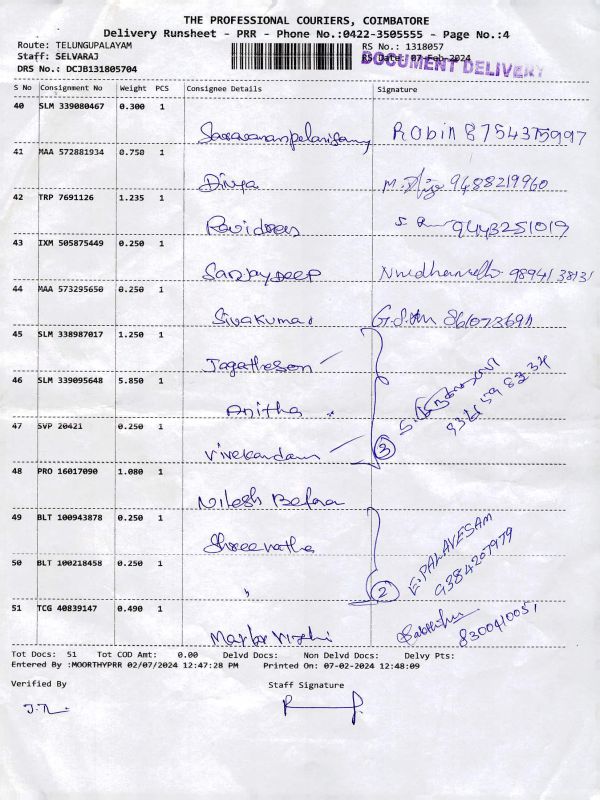 THE PROFESSIONAL COURIERS, COIMBATORE
Delivery Runsheet - PRR - Phone No.:0422-3505555 - Page No.:4
Route: TELUNGUPALAYAM
Staff: SELVARAJ
DRS No.: DCJB131805704
RS No.: 1318057
RS Date: 07-Feb-2024
DOCUMENT DELIVERY
S No Consignment No Weight PCS Consignee Details Signature
40 SLM 339080467 0.300 1
Robin 8754375997
41 MAA 572881934 0.750 1
Divya 9488219960
42 TRP 7691126 1.235 1
9443251019
43 IXM 505875449 0.250 1
Sanjaydeep
44 MAA 573295650 0.250 1
Sivakumar
45 SLM 338987017 1.250 1
Jagatheson
46 SLM 339095648 5.850 1
Anitha
47 SVP 20421 0.250 1
3
48 PRO 16017090 1.080 1
Nilesh
49 BLT 100943878 0.250 1
E. PALAVESAM
9384207979
50 BLT 100218458 0.250 1
"
2
51 TCG 40839147 0.490 1
8300410051
Tot Docs: 51 Tot COD Amt: 0.00 Delvd Docs: Non Delvd Docs: Delvy Pts:
Entered By :MOORTHYPRR 02/07/2024 12:47:28 PM Printed On: 07-02-2024 12:48:09
Verified By Staff Signature